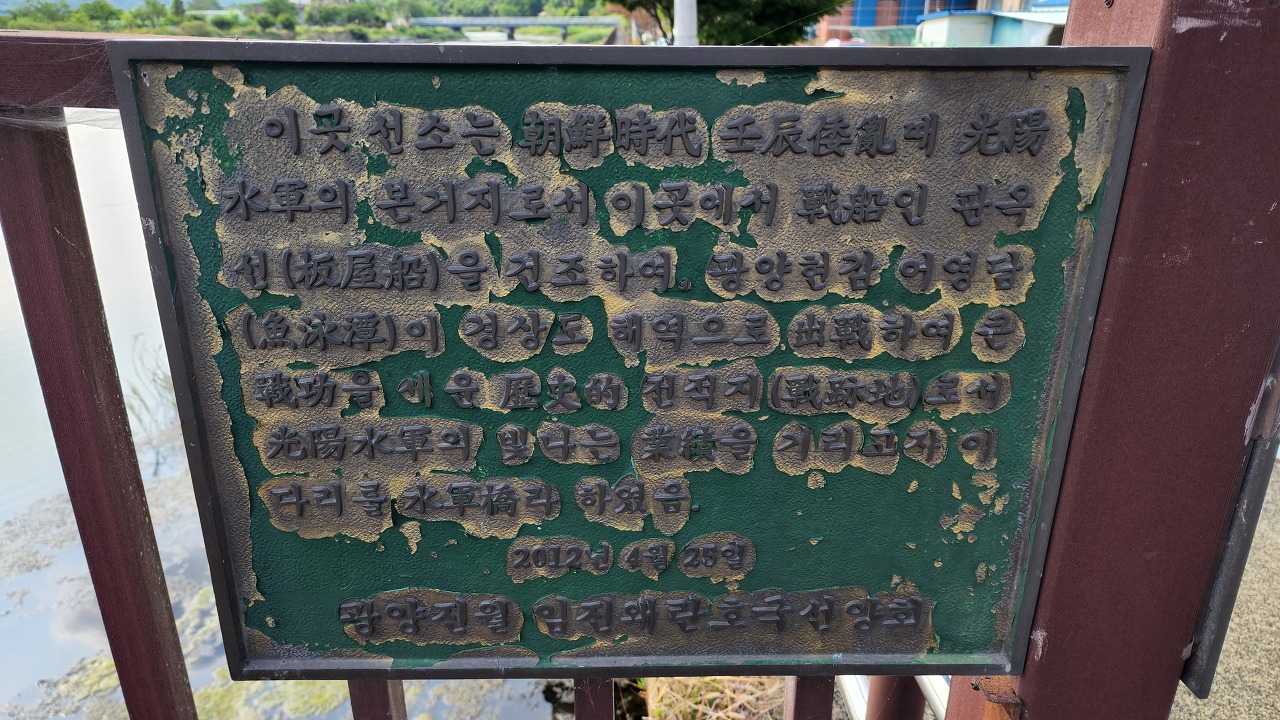 이곳 선소는 朝鮮時代 壬辰倭亂때 光陽
水軍의 본거지로서 이곳에서 戰船인 판옥
선(板屋船)을 건조하여. 광양현감 어영담
(魚泳潭)이 경상도 해역으로 出戰하여 큰
戰功을 세운 歷史的 전적지(戰跡地)로서
光陽水軍의 빛나는 業績을 기리고자 이
다리를 水軍橋라 하였음.
2012년 4월 25일
광양진월 임진왜란호국선양회